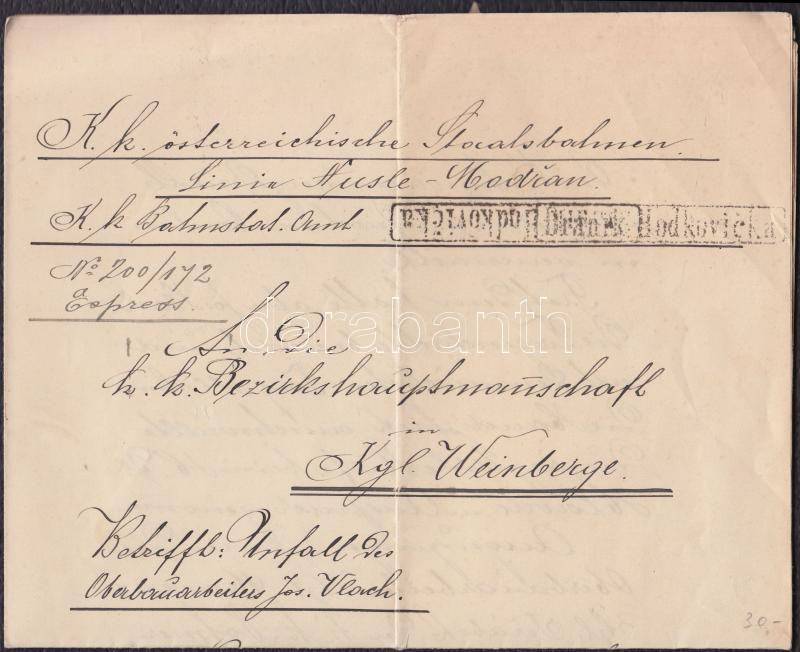 K. k. österreichische Staatsbahnen.
Linie Nusle - Modřan.
K. k Bahnstat. Amt
Hodkovička
Hodkovička
No 200/172
Express.
An die
k. k. Bezirkshauptmannschaft
in
Kgl. Weinberge.
Betrifft: Unfall des
Oberbauarbeiters Jos. Vlach.
30.-
darabanth